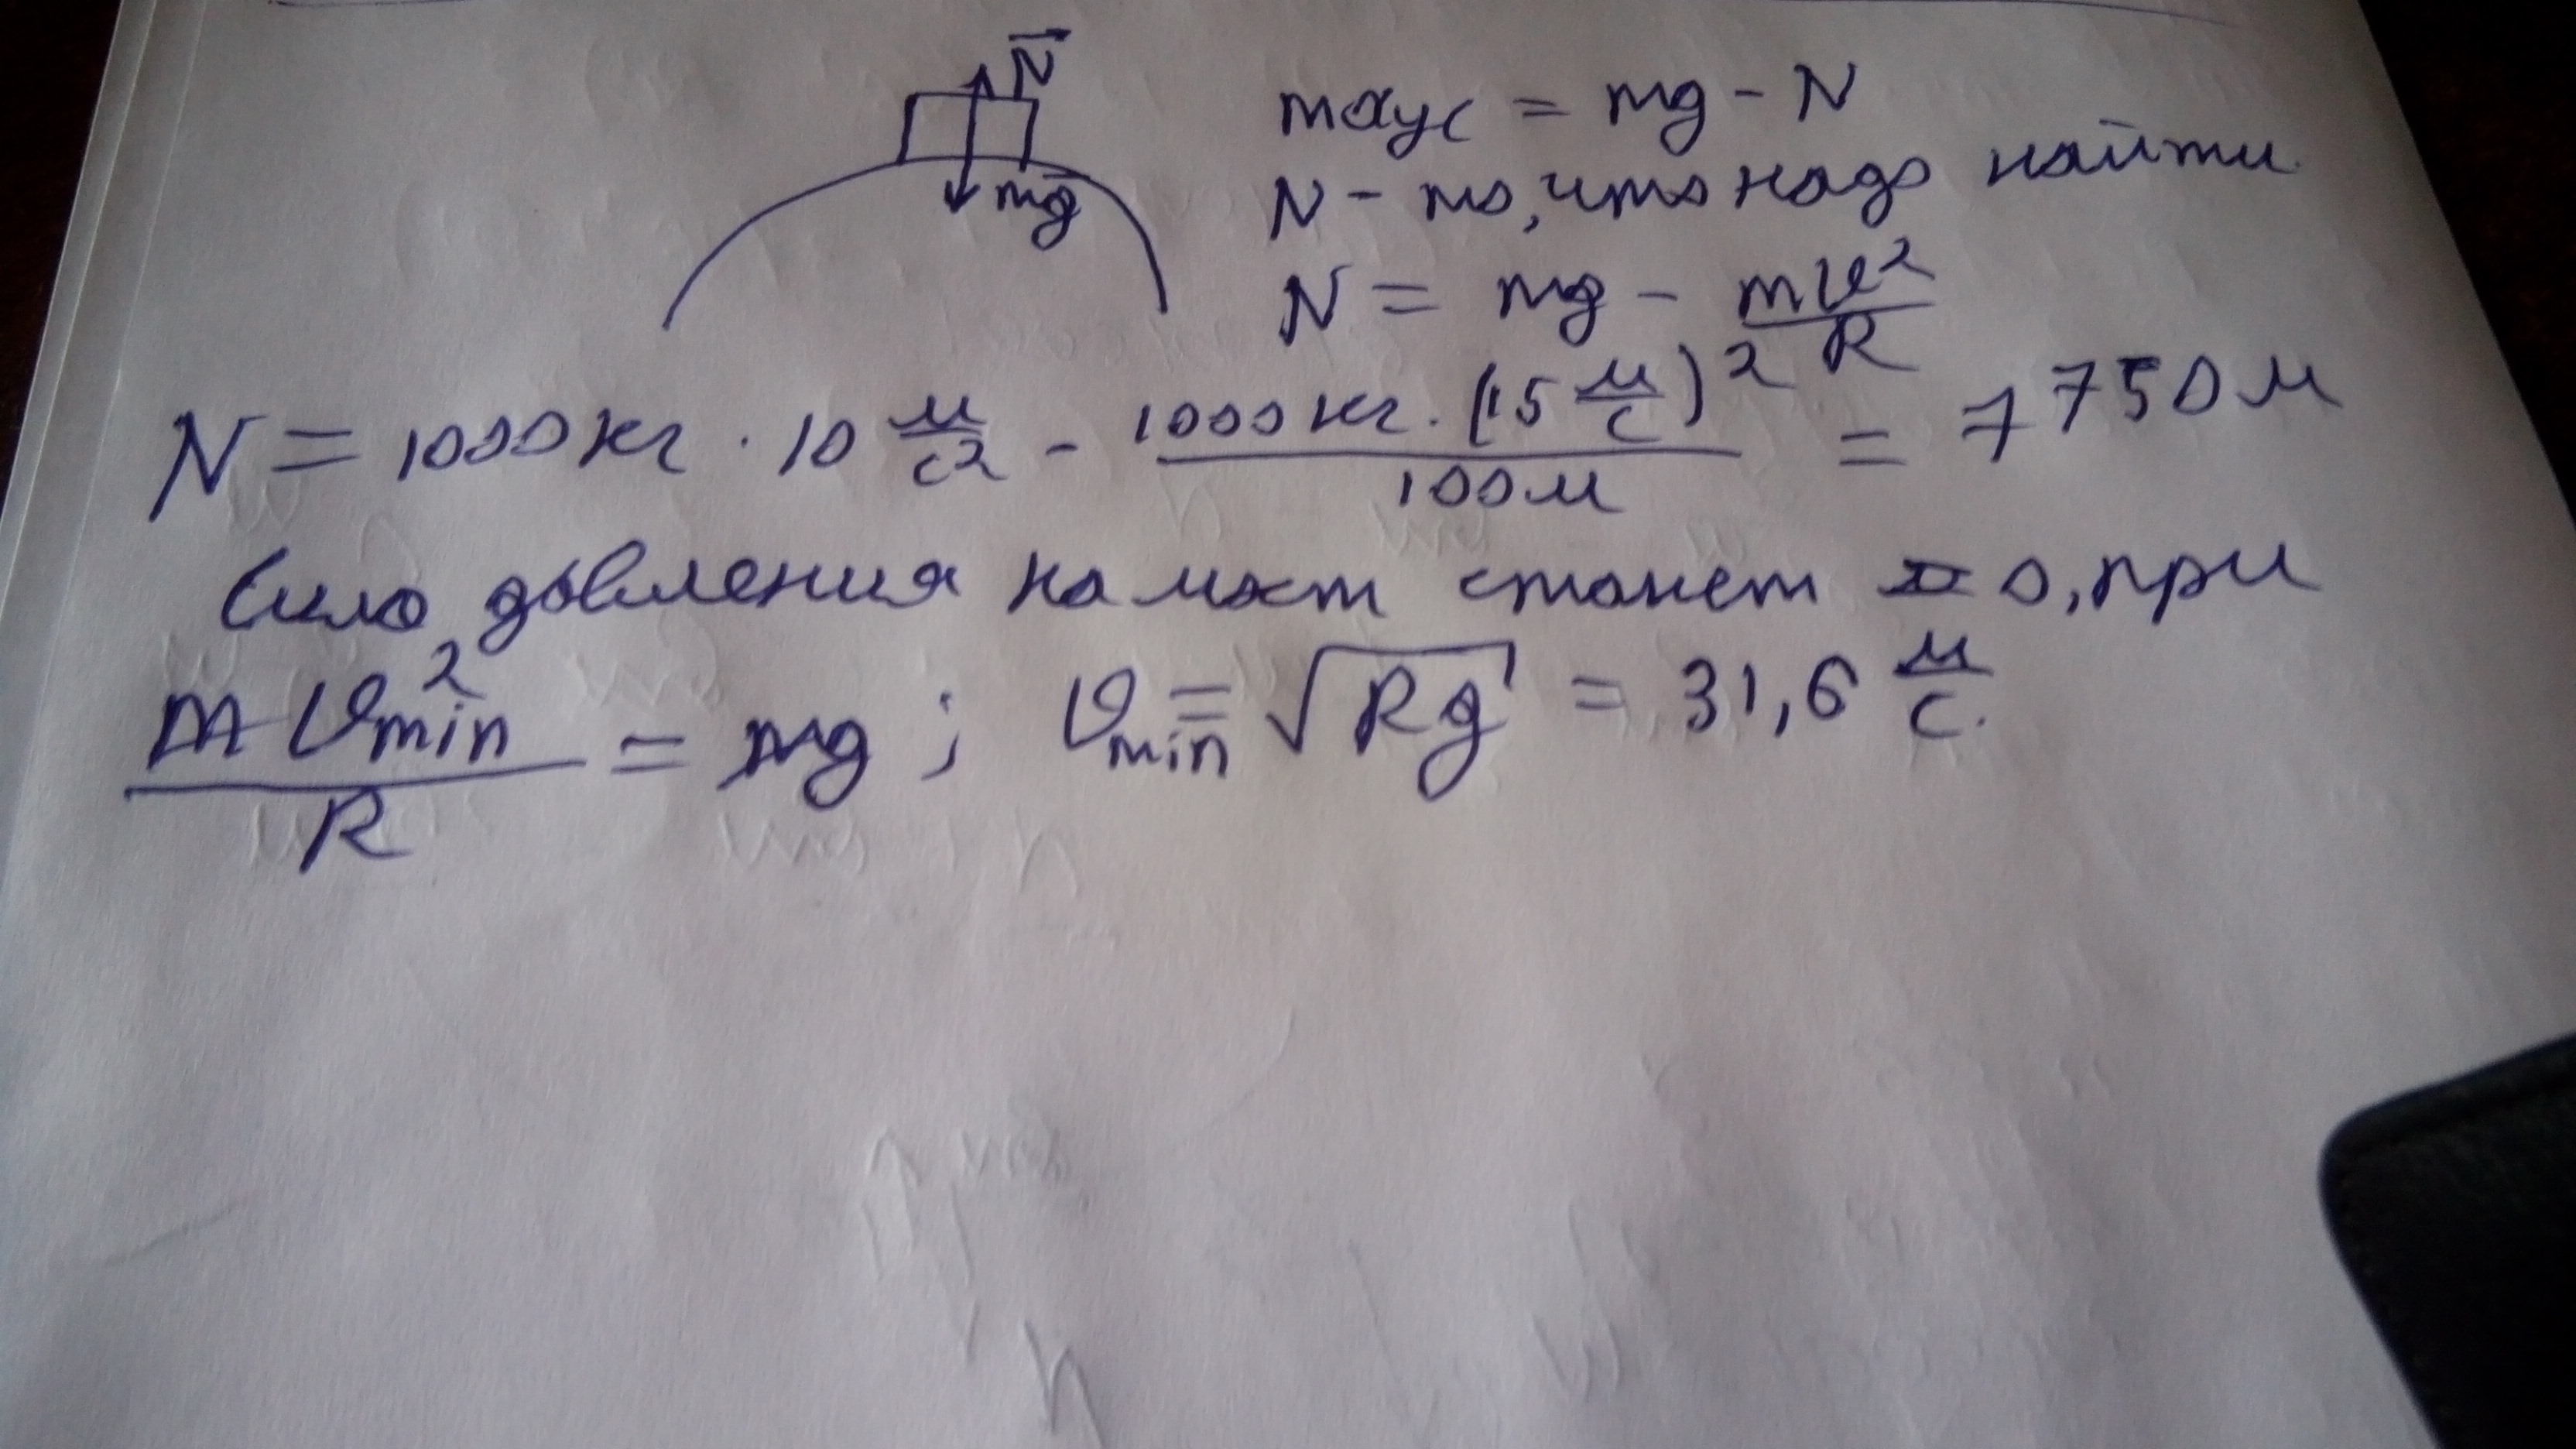 N
mg
maцс = mg - N
N - то, что надо найти
N = mg - mv²/R
N = 1000 кг · 10 м/с² - 1000 кг · (15 м/с)²/100 м = 7750 м
Сила давления на мост станет = 0, при
m v²min/R = mg ; vmin = √Rg = 31,6 м/с.